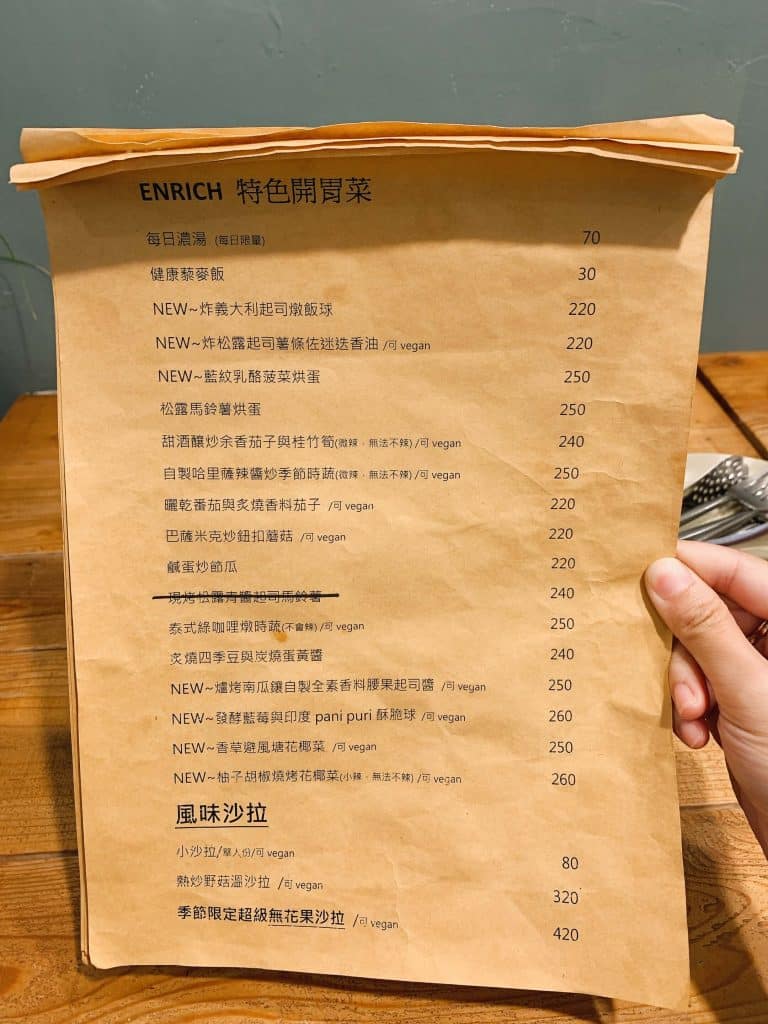 ENRICH 特色開胃菜
每日濃湯 (每日限量) 70
健康藜麥飯 30
NEW~炸義大利起司燉飯球 220
NEW~炸松露起司薯條佐迷迭香油 /可 vegan 220
NEW~藍紋乳酪菠菜烘蛋 250
松露馬鈴薯烘蛋 250
甜酒釀炒余香茄子與桂竹筍(微辣﹒無法不辣) /可 vegan 240
自製哈里薩辣醬炒季節時蔬(微辣﹒無法不辣) /可 vegan 250
曬乾番茄與炙燒香料茄子 /可 vegan 220
巴薩米克炒鈕扣蘑菇 /可 vegan 220
鹹蛋炒節瓜 220
現烤松露青醬起司馬鈴薯 240
泰式綠咖哩燉時蔬(不會辣) /可 vegan 250
炙燒四季豆與炭燒蛋黃醬 240
NEW~爐烤南瓜鑲自製全素香料腰果起司醬 /可 vegan 250
NEW~發酵藍莓與印度 pani puri 酥脆球 /可 vegan 260
NEW~香草避風塘花椰菜 /可 vegan 250
NEW~柚子胡椒燒烤花椰菜(小辣﹒無法不辣) /可 vegan 260
風味沙拉
小沙拉/單人份/可 vegan 80
熱炒野菇溫沙拉 /可 vegan 320
季節限定超級無花果沙拉 /可 vegan 420